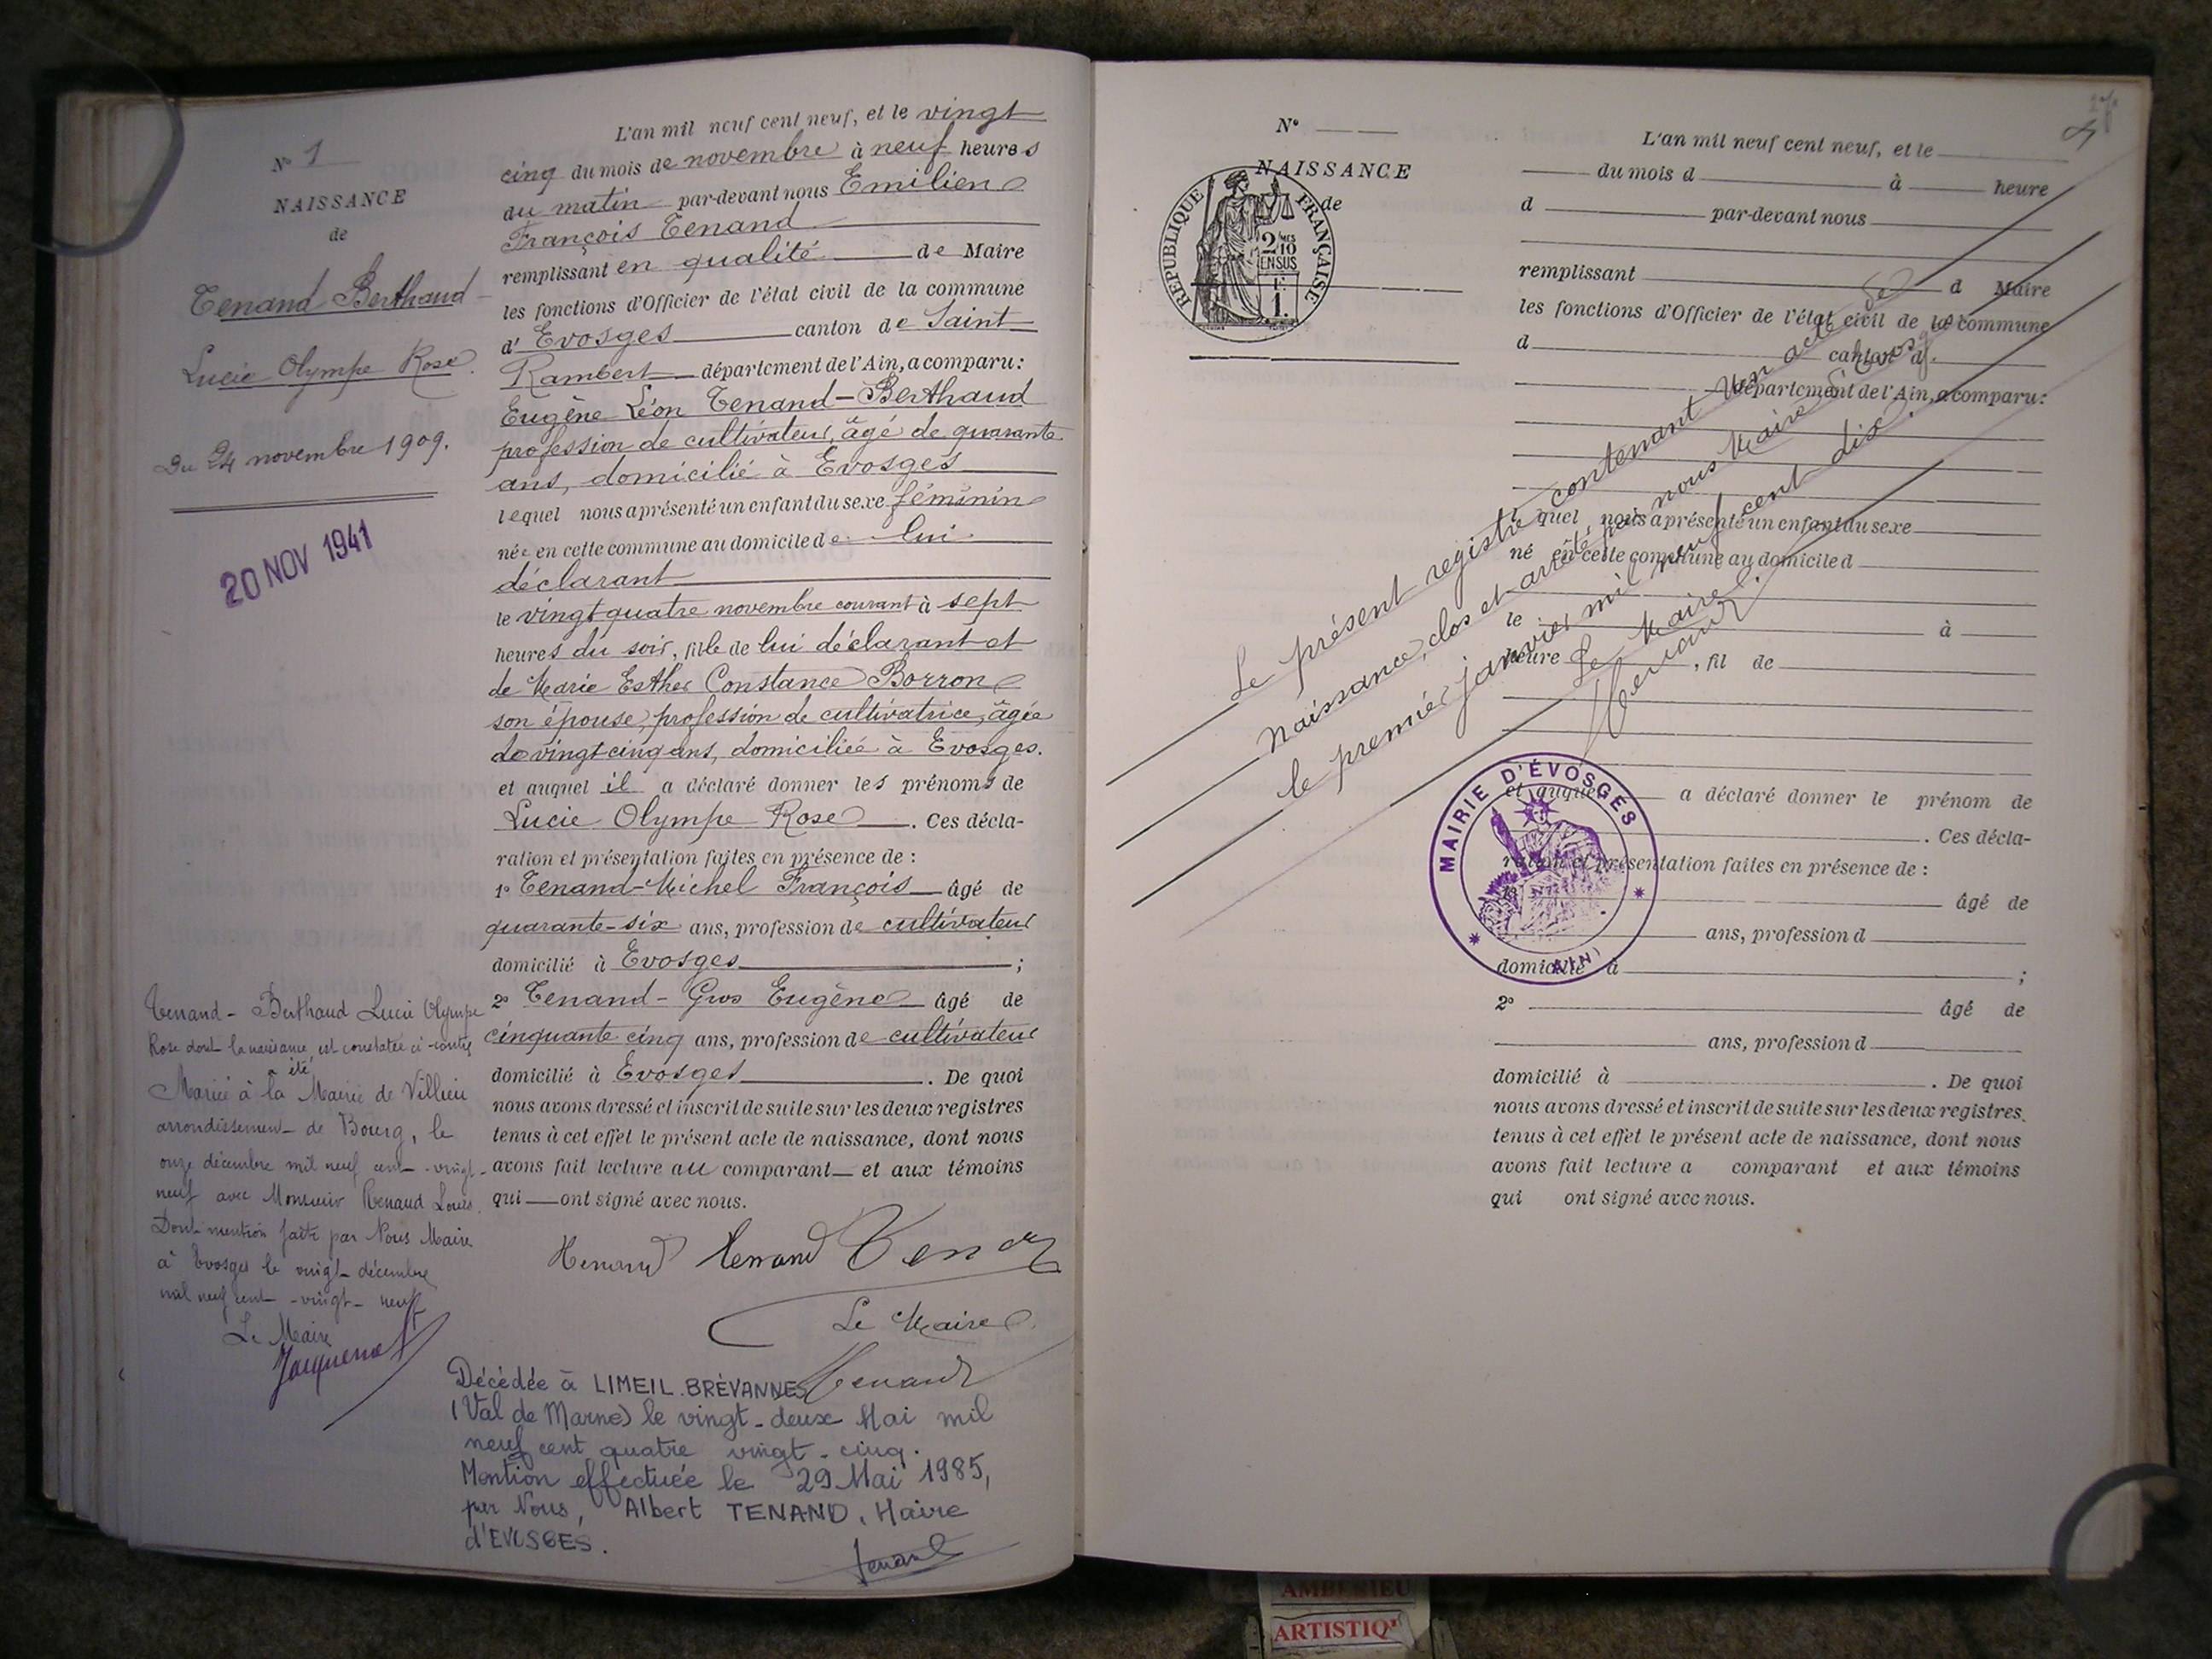 N° 1
NAISSANCE
de
Tenand Berthaud
Lucie Olympe Rose.
Du 24 novembre 1909.
20 NOV 1941
Tenand - Berthaud Lucie Olympe
Rose dont la naissance est constatée ci-contre
a été
Mariée à la Mairie de Villieu
arrondissement de Bourg, le
onze décembre mil neuf cent vingt-
neuf avec Monsieur Renaud Louis.
Dont mention faite par Nous Maire
à Evosges le vingt décembre
mil neuf cent vingt-neuf
Le Maire
L'an mil neuf cent neuf, et le vingt
cinq du mois de novembre à neuf heures
du matin par-devant nous Emilien
François Tenand
remplissant en qualité de Maire
les fonctions d'Officier de l'état civil de la commune
d' Evosges canton de Saint
Rambert département de l'Ain, a comparu:
Eugène Léon Tenand-Berthaud
profession de cultivateur, âgé de quarante
ans, domicilié à Evosges
lequel nous a présenté un enfant du sexe féminin
née en cette commune au domicile de lui
déclarant
le vingt quatre novembre courant à sept
heures du soir, fille de lui déclarant et
de Marie Esther Constance Borron
son épouse, profession de cultivatrice, âgée
de vingt cinq ans, domiciliée à Evosges.
et auquel il a déclaré donner les prénoms de
Lucie Olympe Rose. Ces décla-
ration et présentation faites en présence de :
1° Tenand-Michel François âgé de
quarante-six ans, profession de cultivateur
domicilié à Evosges ;
2° Tenand-Gros Eugène âgé de
cinquante cinq ans, profession de cultivateur
domicilié à Evosges. De quoi
nous avons dressé et inscrit de suite sur les deux registres
tenus à cet effet le présent acte de naissance, dont nous
avons fait lecture au comparant et aux témoins
qui ont signé avec nous.
Tenand Tenand Tenand
Le Maire
Tenand
Décédée à LIMEIL.BRÉVANNES
(Val de Marne) le vingt-deux Mai mil
neuf cent quatre vingt-cinq.
Mention effectuée le 29 Mai 1985,
par Nous, Albert TENAND, Maire
d'EVOSGES.
Tenand
N°
NAISSANCE
de
RÉPUBLIQUE FRANÇAISE
2/10 MES
EN SUS
1 F.
L'an mil neuf cent neuf, et le
du mois d à heure
d par-devant nous
remplissant d Maire
les fonctions d'Officier de l'état civil de la commune
d canton d
département de l'Ain, a comparu:
lequel nous a présenté un enfant du sexe
né en cette commune au domicile d
le à
heure , fil de
et auquel a déclaré donner le prénom de
. Ces décla-
ration et présentation faites en présence de :
1° âgé de
ans, profession d
domicilié à ;
2° âgé de
ans, profession d
domicilié à . De quoi
nous avons dressé et inscrit de suite sur les deux registres
tenus à cet effet le présent acte de naissance, dont nous
avons fait lecture a comparant et aux témoins
qui ont signé avec nous.
Le présent registre contenant un acte de
Naissance, clos et arrêté par nous Maire d'Evosges.
le premier janvier mil neuf cent dix.
Le Maire
Tenand
MAIRIE D'ÉVOSGES
(AIN)
AMBERIEU
ARTISTIQ